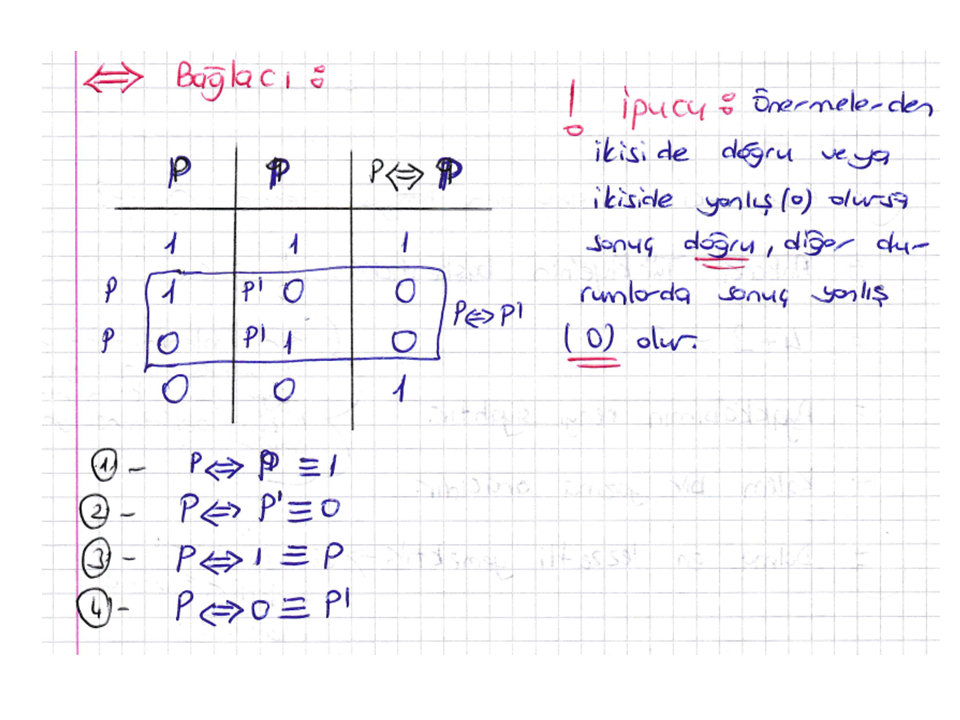 ⇔ Bağlacı :
P P P⇔P
1 1 1
P 1 P' 0 0
P 0 P' 1 0
P⇔P'
0 0 1
! ipucu : Önermelerden
ikiside doğru veya
ikiside yanlış (0) olursa
sonuç doğru, diğer du-
rumlarda sonuç yanlış
(0) olur.
1 - P⇔P ≡ 1
2 - P⇔P' ≡ 0
3 - P⇔1 ≡ P
4 - P⇔0 ≡ P'